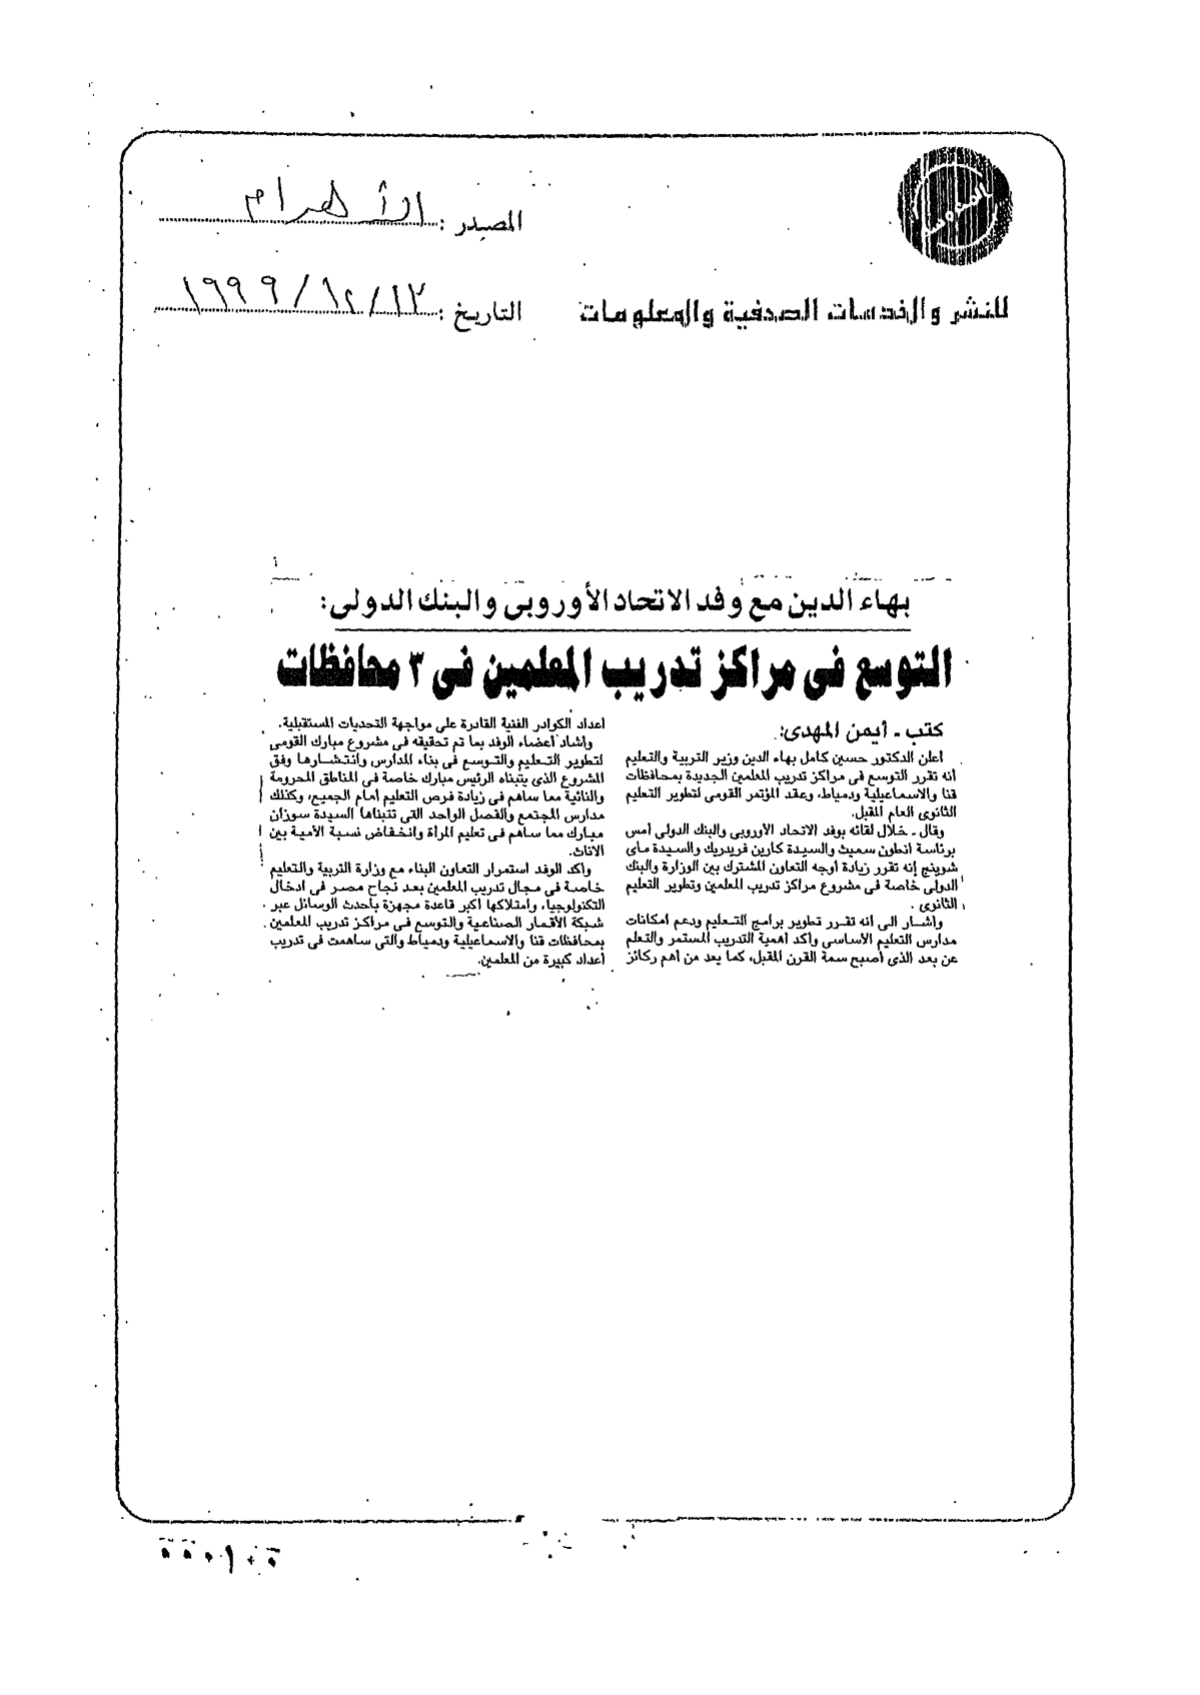 المصدر : الأهرام
للنشر والخدمات الصحفية والمعلومات
التاريخ : ١٩٩٩/١٢/١٣
بهاء الدين مع وفد الاتحاد الأوروبى والبنك الدولى:
التوسع فى مراكز تدريب المعلمين فى ٣ محافظات
كتب ـ أيمن المهدى:
اعلن الدكتور حسين كامل بهاء الدين وزير التربية والتعليم
انه تقرر التوسع فى مراكز تدريب المعلمين الجديدة بمحافظات
قنا والاسماعيلية ودمياط، وعقد المؤتمر القومى لتطوير التعليم
الثانوى العام المقبل.
وقال ـ خلال لقائه بوفد الاتحاد الأوروبى والبنك الدولى أمس
برئاسة انطون سميث والسيدة كارين فريدريك والسيدة ماى
شوينج إنه تقرر زيادة أوجه التعاون المشترك بين الوزارة والبنك
الدولى خاصة فى مشروع مراكز تدريب المعلمين وتطوير التعليم
الثانوى .
واشار الى انه تقرر تطوير برامج التعليم ودعم امكانات
مدارس التعليم الأساسى وأكد أهمية التدريب المستمر والتعلم
عن بعد الذى أصبح سمة القرن المقبل، كما يعد من أهم ركائز
اعداد الكوادر الفنية القادرة على مواجهة التحديات المستقبلية.
وأشاد أعضاء الوفد بما تم تحقيقه فى مشروع مبارك القومى
لتطوير التعليم والتوسع فى بناء المدارس وانتشارها وفق
المشروع الذى يتبناه الرئيس مبارك خاصة فى المناطق المحرومة
والنائية مما ساهم فى زيادة فرص التعليم أمام الجميع، وكذلك
مدارس المجتمع والفصل الواحد التى تتبناها السيدة سوزان
مبارك مما ساهم فى تعليم المرأة وانخفاض نسبة الأمية بين
الاناث.
واكد الوفد استمرار التعاون البناء مع وزارة التربية والتعليم
خاصة فى مجال تدريب المعلمين بعد نجاح مصر فى ادخال
التكنولوجيا، وامتلاكها اكبر قاعدة مجهزة بأحدث الوسائل عبر
شبكة الأقمار الصناعية والتوسع فى مراكز تدريب المعلمين
بمحافظات قنا والاسماعيلية ودمياط والتى ساهمت فى تدريب
أعداد كبيرة من المعلمين.